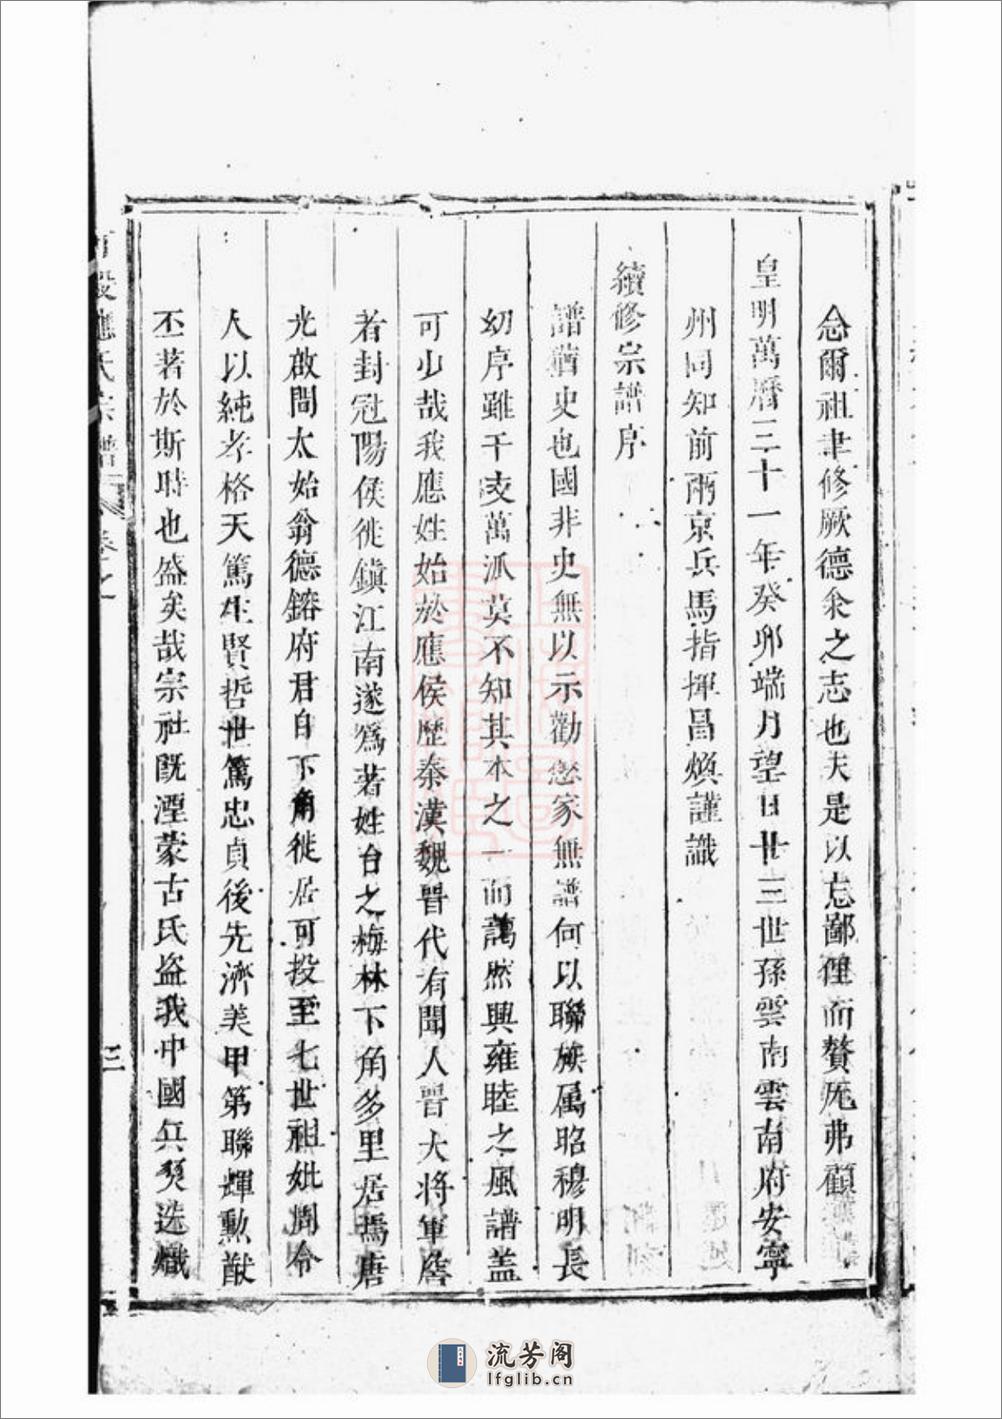 念爾祖聿修厥德汆之志也夫是以忘鄙俚而贅厖弗顧
皇明萬曆三十一年癸卯端月望日廿三世孫雲南雲南府安寧
州同知前兩京兵馬指揮昌煥謹識
續修宗譜序
譜猶史也國非史無以示勸懲家無譜何以聯族属昭穆明長
幼序雖千支萬派莫不知其本之一而藹然興雍睦之風譜盖
可少哉我應姓始於應侯歷秦漢魏晉代有聞人晉大將軍詹
者封冠陽侯徙鎮江南遂爲著姓台之梅林下角多里居焉唐
光啟間太始翁德鎔府君自下角徙居可投至七世祖妣周令
人以純孝格天篤生賢哲世篤忠貞後先濟美甲第聯輝勳猷
丕著於斯時也盛矣哉宗社旣湮蒙古氏盗我中國兵燹迭熾
可投應氏宗譜
卷之一
三
流芳阁
lfglib.cn